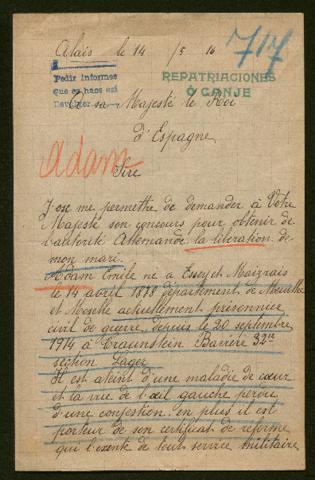 Alais le 14/5 16
717
Pedir informes
que se hace así
REPATRIACIONES
Ó CANJE
A sa Majesté le Roi
d'Espagne
Adam
Sire
J'ose me permettre de demander à Votre
Majesté son concours pour obtenir de
l'autorité Allemande la libération de
mon mari.
Adam Emile né a Essey et Maizerais
le 14 avril 1878 département de Meurthe
et Moselle actuellement prisonnier
civil de guerre, depuis le 20 septembre
1914 à Traunstein Bavière 32me
section Lager
Il est atteint d'une maladie de cœur
et la vue de l'œil gauche perdu
d'une congestion. en plus il est
porteur de son certificat de reforme
qui l'exente de tout service militaire